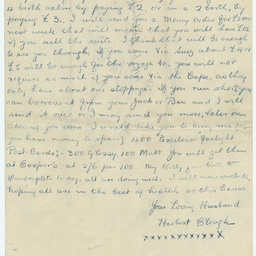 a berth cabin by paying £2, or in a 2 berth, by
paying £3. I will send you a Money Order for £
next week, that will mean that you will have £
if you sell the suite. I think that will be enough
to see you through, if you come via Suez about £4 or
£5 will be enough for the voyage to. you will not
require so much if you come via The Cape, as they
only have about one stoppage. If you run short you
can borrow it from your Jack or Ben and I will
send it over or I may send you more, later on
as you come. I would like you to bring me (if
you have money to spare) 1600 Excelsior Gaslight
Post Cards:- 300 Glossy, 100 Matt. You will get them
at Cooper's at 2/6 per 100. My
to day, all are doing well. I will now conclude,
hoping all are in the best of health as this leaves.
Your Loving Husband
Herbert Clough
xxxxxxxxxx